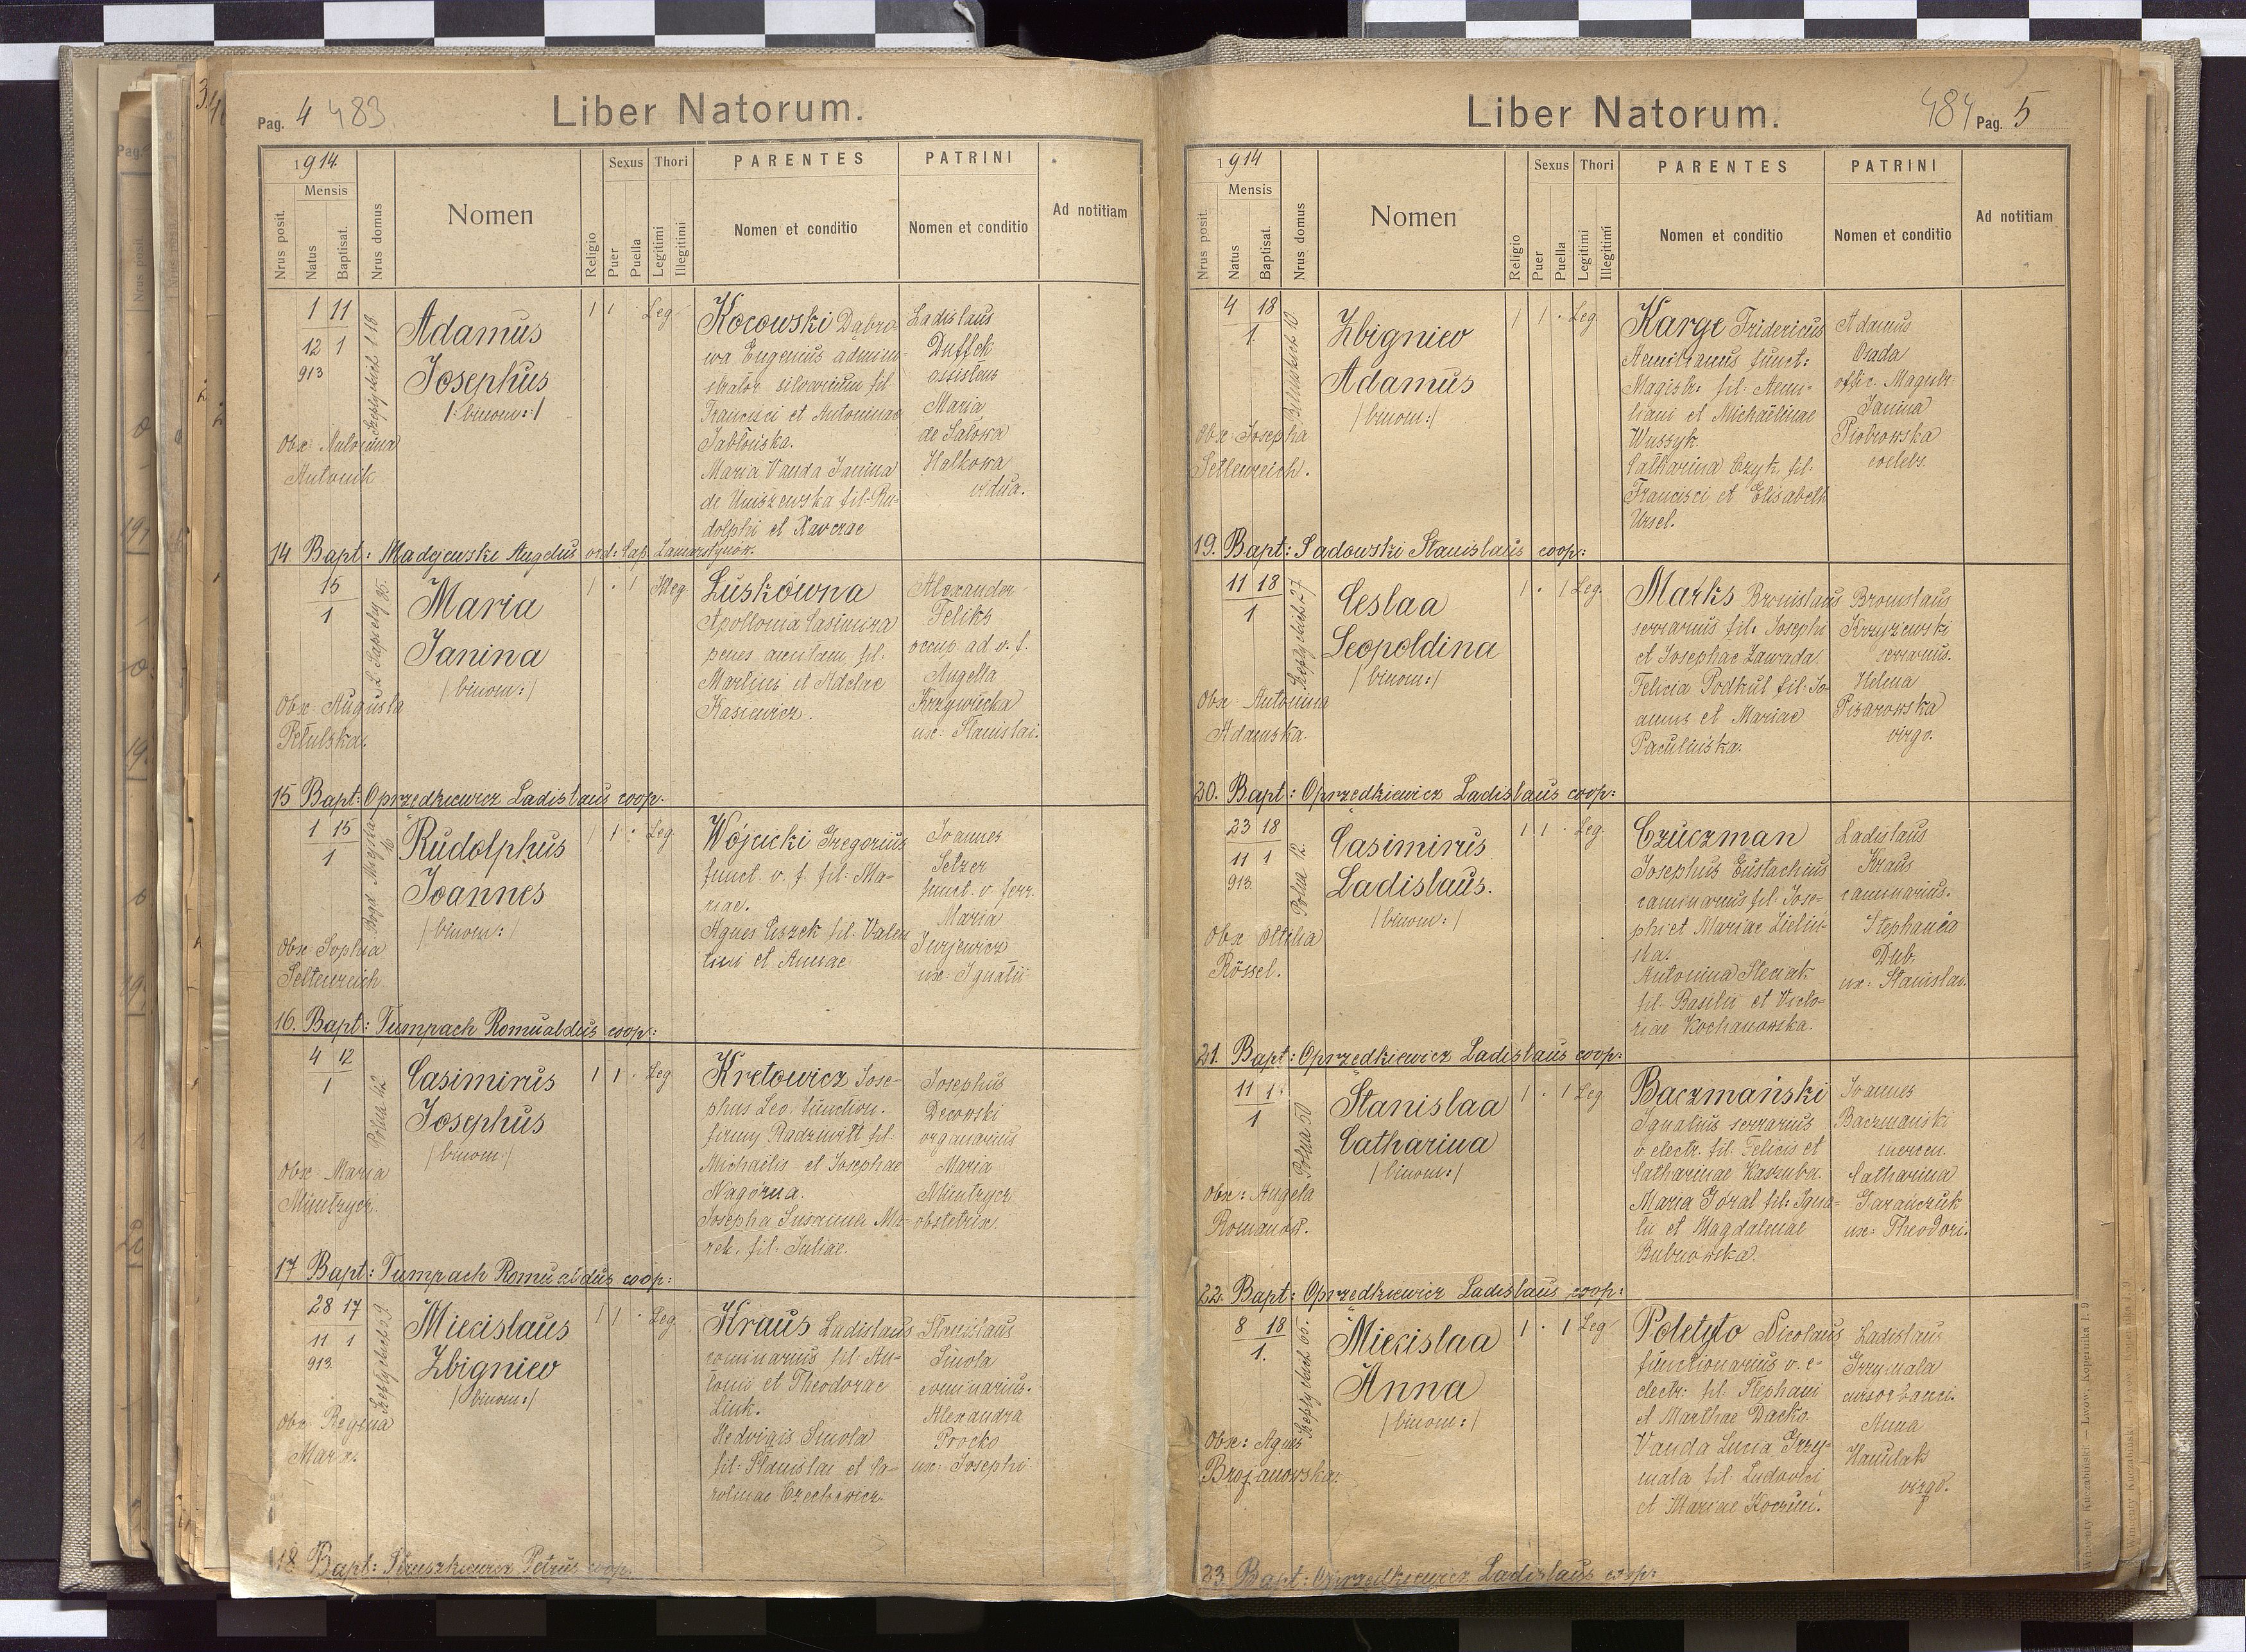 Pag. 4 483.
Liber Natorum.
1914
Mensis
Nrus posit.
Natus
Baptisat.
Nrus domus
Nomen
Religio
Sexus
Puer
Puella
Thori
Legitimi
Illegitimi
PARENTES
Nomen et conditio
PATRINI
Nomen et conditio
Ad notitiam
1 11
12 1
913
Szeptyckich 118
Adamus
Josephus
/: binom: /
1 1 Leg.
Obx: Antonina
Antonik
Kocowski Dąbro-
wa Eugenius admini-
strator silvarum fil.
Francisci et Antoninae
Jabłońska.
Maria Vanda Janina
de Uniszewska fil: Ru-
dolphi et Xaverae
Ladislaus
Duffek
assistens
Maria
de Salowa
Halkowa
vidua.
14 Bapt: Madejewski Angelus ord: Cap.
15
1
L. Sapiehy 85.
Maria
Janina
/ binom: /
1 · 1 Illeg.
Obx: Augusta
Petulska.
Luskówna
Apollonia Casimira
penes ancilam fil.
Martini et Adelae
Kasiewicz.
Alexander
Feliks
occup. ad v. f.
Angella
Krzywiecka
ux: Stanislai.
15 Bapt: Oprzędkiewicz Ladislaus coop.
1 15
1
Rudolphus
Joannes
/ binom: /
1 1 · Leg.
Obx: Sophia
Seltenreich.
Wójcicki Gregorius
funct. v. f. fil: Ma-
riae.
Agnes Ciszek fil: Valen
tini et Annae
Joannes
Setzer
funct. v. ferr.
Maria
Jurjewicz
ux: Ignatii
16. Bapt: Tumpach Romualdus coop:
4 12
1
Polna 42.
Casimirus
Josephus
/ binom: /
1 1 · Leg
Obx: Maria
Muntrycz.
Kretowicz Jose-
phus Leo. function.
firmy Radziwiłł fil.
Michaelis et Josephae
Nagórna.
Josepha Susanna Ma-
rek. fil: Juliae.
Josephus
Decowski
organarius
Maria
Muntrycz
obstetrix.
17 Bapt: Tumpach Romualdus coop:
28 17
11 1
913.
Szeptyckich 29.
Miecislaus
Zbigniew
/ binom: /
1 1 · Leg.
Obx: Regina
Marx.
Kraus Ladislaus
cominarius fil: An-
tonii et Theodorae
Link.
Hedvigis Smola
fil: Stanislai et Ca-
rolinae Czechowicz.
Stanislaus
Smola
cominarius.
Alexandra
Procko
ux: Josephi
18. Bapt: Petrus coop.
Liber Natorum.
484 Pag. 5
1914
Mensis
Nrus posit.
Natus
Baptisat.
Nrus domus
Nomen
Religio
Sexus
Puer
Puella
Thori
Legitimi
Illegitimi
PARENTES
Nomen et conditio
PATRINI
Nomen et conditio
Ad notitiam
4 18
1.
Bilinskich 10
Zbigniew
Adamus
/ binom: /
1 1 · Leg.
Obx: Josepha
Seltenreich.
Karge Fridericus
Aemilianus funct:
Magistr: fil: Aemi-
liani et Michaëlinae
Wuszyk.
Catharina Czyk fil.
Francisci et Elisabeth
Ursel.
Adamus
Osada
offic. Magistr.
Janina
Piotrowska
coelebs.
19. Bapt: Sadowski Stanislaus coop:
11 18
1
Szeptyckich 27
Ceslaa
Leopoldina
/ binom: /
1 · 1 Leg.
Obx: Antonina
Adamska.
Marks Bronislaus
serrarius fil: Josephi
et Josephae Zawada.
Felicia Podkul fil: Jo-
annis et Mariae
Paculińska.
Bronislaus
Krzyżewski
serrarius.
Helena
Pisarowska
virgo.
20. Bapt: Oprzędkiewicz Ladislaus coop:
23 18
11 1
913.
Polna 12.
Casimirus
Ladislaus.
/ binom: /
1 1 · Leg.
Obx Ottilia
Rössel.
Czuczman
Josephus Eustachius
caminarius fil: Jose-
phi et Mariae Zieliń-
ska.
Antonina Steciak
fil: Basilii et Victo-
riae Kochanowska.
Ladislaus
Kraus
caminarius.
Stephania
Dub.
ux: Stanislai.
21. Bapt: Oprzędkiewicz Ladislaus coop:
11 1.
1
Polna 50
Stanislaa
Catharina
/ binom: /
1 · 1 Leg.
Obx: Angela
Romanow.
Baczmański
Ignatius serrarius
v electr. fil: Felicis et
Catharinae Kaszuba.
Maria Góral fil: Igna-
tii et Magdalenae
Bubnowska.
Joannes
Baczmanski
mercen.
Catharina
Garanczuk
ux: Theodori.
22. Bapt: Oprzędkiewicz Ladislaus coop:
8 18
1.
Szeptyckich 65.
Miecislaa
Anna
/ binom: /
1 · 1 Leg
Obx: Agnes
Brojanowska.
Poletyło Nicolaus
functionarius v. e-
electr: fil: Stephani
et Marthae Dacko.
Vanda Lucia Grzy-
mala fil: Ludovici
et Mariae Koczuń.
Ladislaus
Grzymala
cursor banci.
Anna
Hanulak
virgo.
23. Bapt: Oprzędkiewicz Ladislaus coop:
Wincenty Kuczabiński — Lwów, Kopernika l. 9